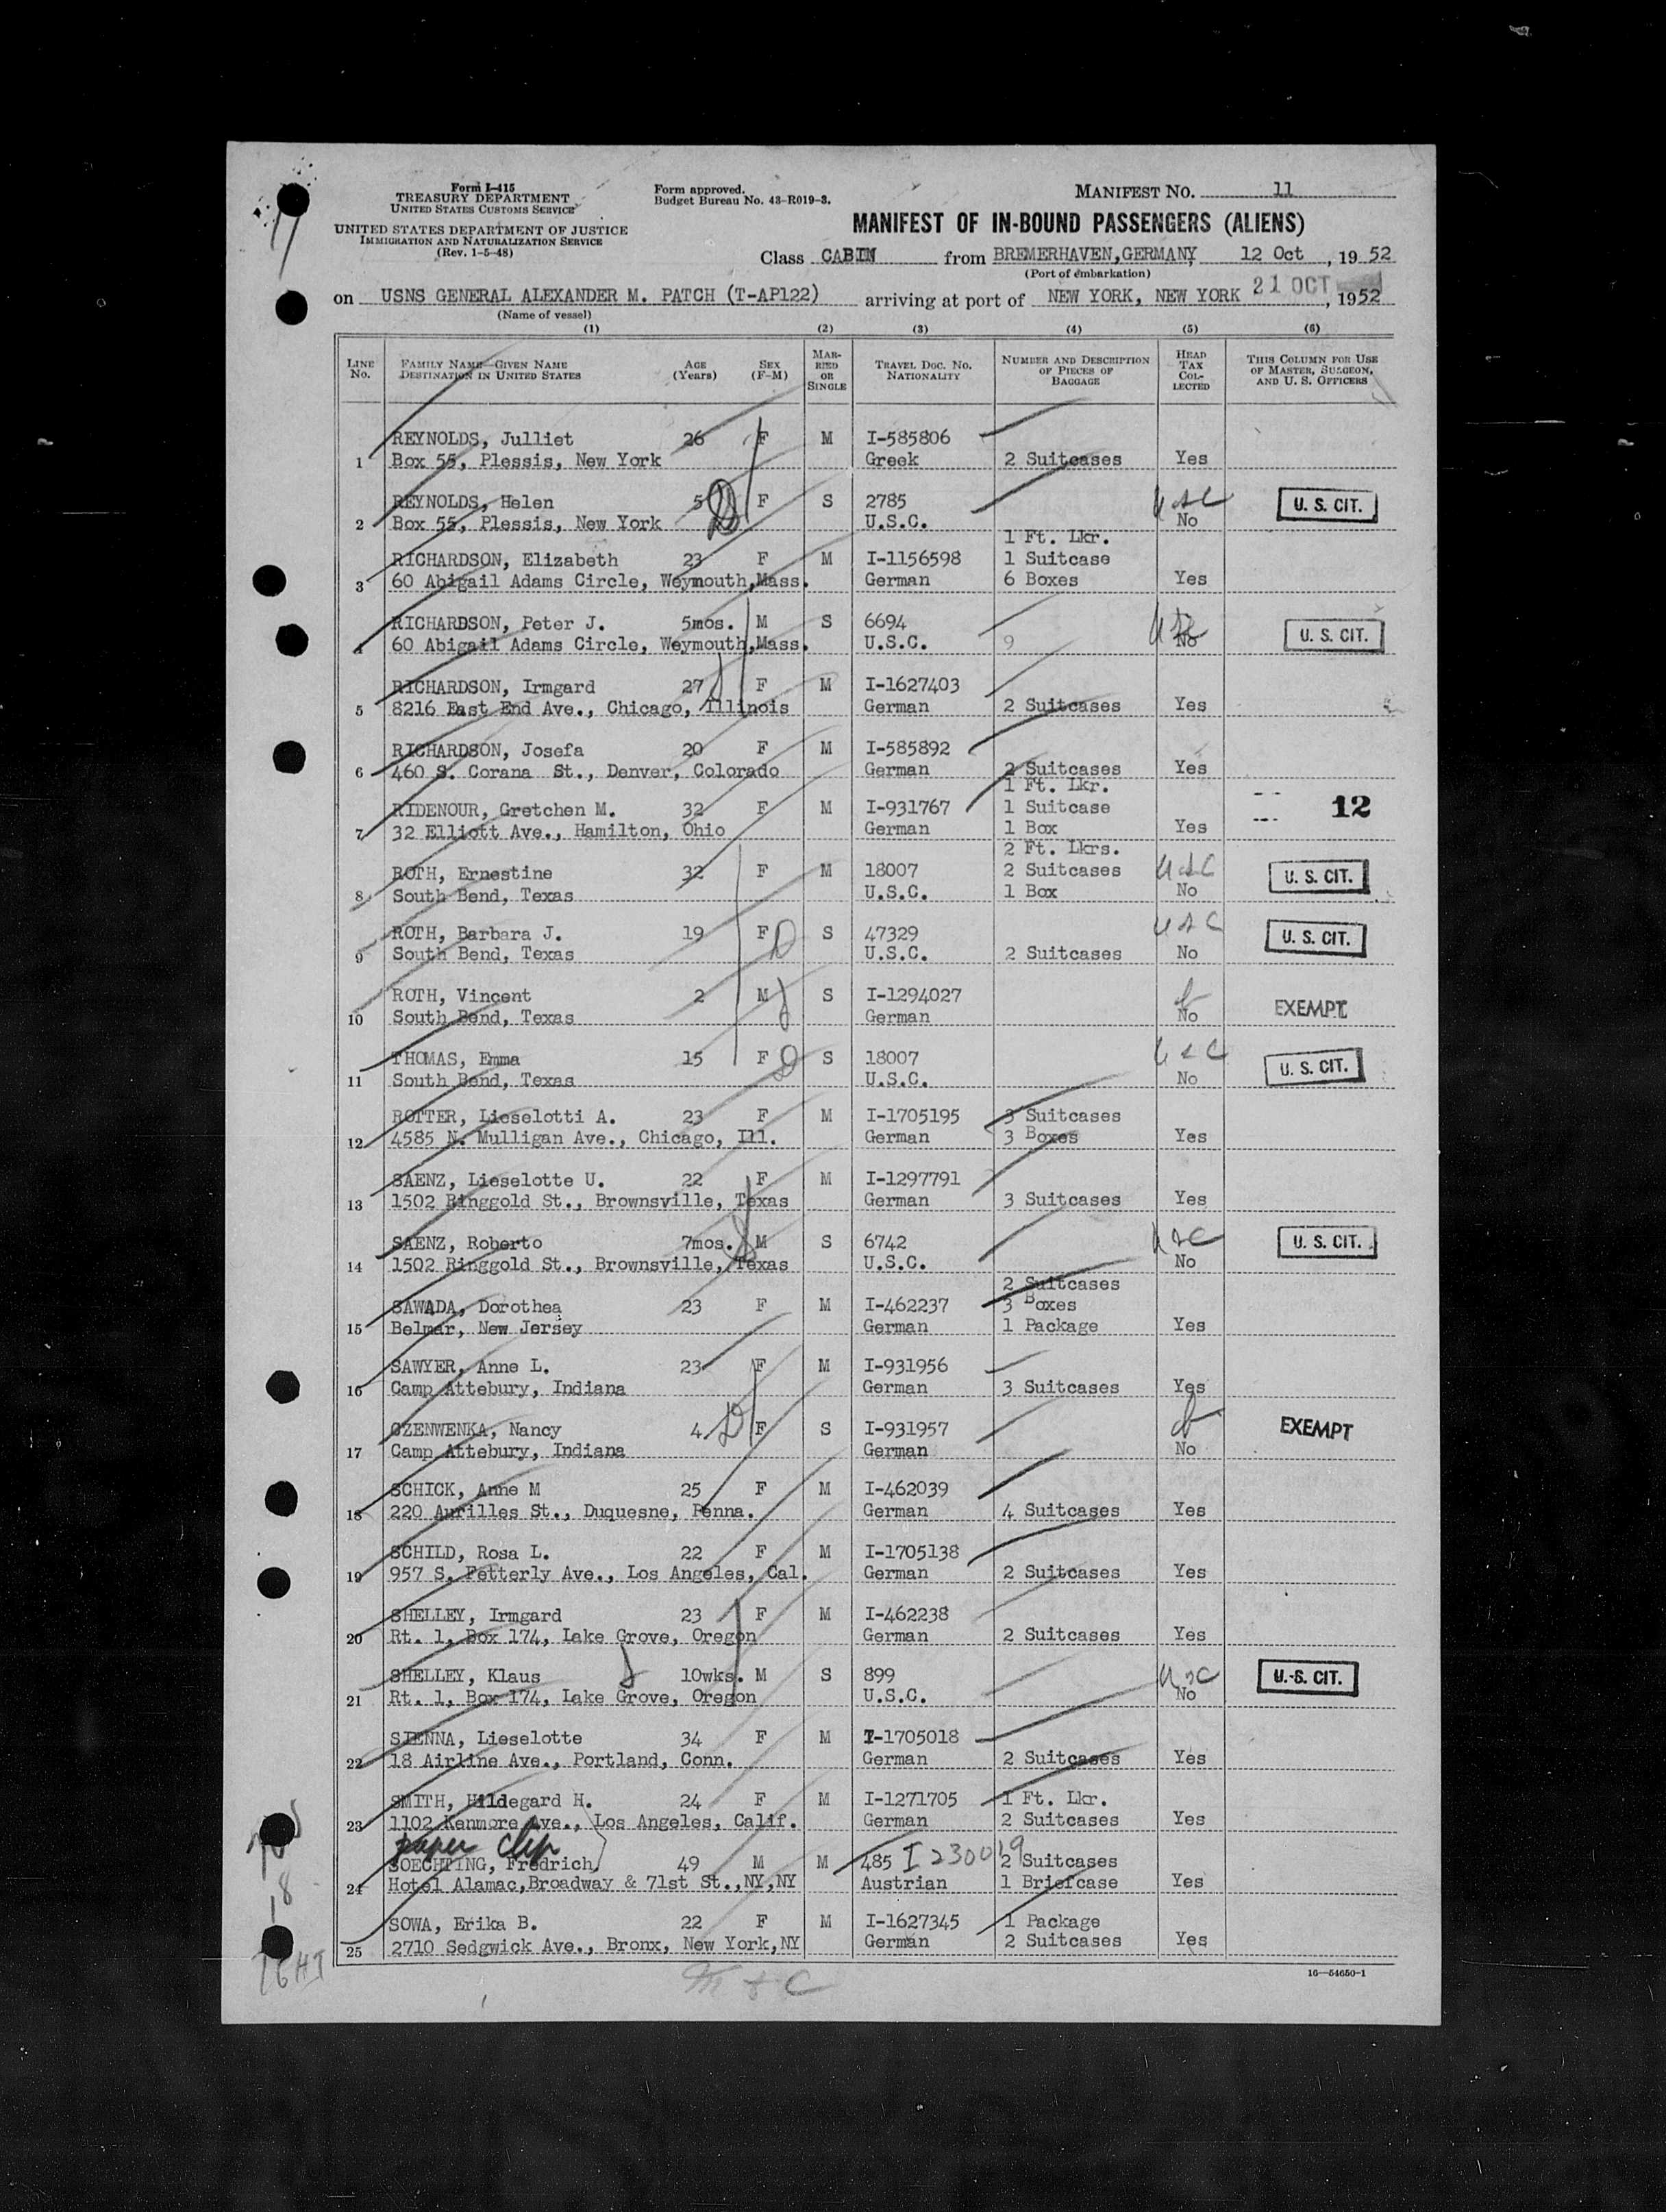 Form I-415
TREASURY DEPARTMENT
UNITED STATES CUSTOMS SERVICE
UNITED STATES DEPARTMENT OF JUSTICE
IMMIGRATION AND NATURALIZATION SERVICE
(Rev. 1-5-48)
Form approved.
Budget Bureau No. 43-R019-3.
MANIFEST NO. 11
MANIFEST OF IN-BOUND PASSENGERS (ALIENS)
Class CABIN from BREMERHAVEN,GERMANY 12 Oct, 1952
(Port of embarkation)
on USNS GENERAL ALEXANDER M. PATCH (T-AP122) arriving at port of NEW YORK, NEW YORK 21 OCT, 1952
(Name of vessel)
(1) (2) (3) (4) (5) (6)
LINE No. FAMILY NAME—GIVEN NAME DESTINATION IN UNITED STATES AGE (Years) SEX (F-M) MARRIED OR SINGLE TRAVEL DOC. NO. NATIONALITY NUMBER AND DESCRIPTION OF PIECES OF BAGGAGE HEAD TAX COLLECTED THIS COLUMN FOR USE OF MASTER, SURGEON, AND U. S. OFFICERS
REYNOLDS, Julliet 26 F M I-585806
1 Box 55, Plessis, New York Greek 2 Suitcases Yes
REYNOLDS, Helen 5 F S 2785 USC U. S. CIT.
2 Box 55, Plessis, New York U.S.C. No
1 Ft. Lkr.
RICHARDSON, Elizabeth 23 F M I-1156598 1 Suitcase
3 60 Abigail Adams Circle, Weymouth,Mass. German 6 Boxes Yes
RICHARDSON, Peter J. 5mos. M S 6694 U. S. CIT.
4 60 Abigail Adams Circle, Weymouth,Mass. U.S.C. 9 No
RICHARDSON, Irmgard 27 F M I-1627403
5 8216 East End Ave., Chicago, Illinois German 2 Suitcases Yes
RICHARDSON, Josefa 20 F M I-585892
6 460 S. Corana St., Denver, Colorado German 2 Suitcases Yes
1 Ft. Lkr.
RIDENOUR, Gretchen M. 32 F M I-931767 1 Suitcase 12
7 32 Elliott Ave., Hamilton, Ohio German 1 Box Yes
2 Ft. Lkrs.
ROTH, Ernestine 32 F M 18007 2 Suitcases USC U. S. CIT.
8 South Bend, Texas U.S.C. 1 Box No
ROTH, Barbara J. 19 F S 47329 USC U. S. CIT.
9 South Bend, Texas U.S.C. 2 Suitcases No
ROTH, Vincent 2 M S I-1294027 EXEMPT
10 South Bend, Texas German No
THOMAS, Emma 15 F S 18007 USC U. S. CIT.
11 South Bend, Texas U.S.C. No
ROTTER, Lieselotti A. 23 F M I-1705195 3 Suitcases
12 4585 N. Mulligan Ave., Chicago, Ill. German 3 Boxes Yes
SAENZ, Lieselotte U. 22 F M I-1297791
13 1502 Ringgold St., Brownsville, Texas German 3 Suitcases Yes
SAENZ, Roberto 7mos. M S 6742 USC U. S. CIT.
14 1502 Ringgold St., Brownsville, Texas U.S.C. No
2 Suitcases
SAWADA, Dorothea 23 F M I-462237 3 Boxes
15 Belmar, New Jersey German 1 Package Yes
SAWYER, Anne L. 23 F M I-931956
16 Camp Attebury, Indiana German 3 Suitcases Yes
OZENWENKA, Nancy 4 F S I-931957 EXEMPT
17 Camp Attebury, Indiana German No
SCHICK, Anne M 25 F M I-462039
18 220 Aurilles St., Duquesne, Penna. German 4 Suitcases Yes
SCHILD, Rosa L. 22 F M I-1705138
19 957 S. Fetterly Ave., Los Angeles, Cal. German 2 Suitcases Yes
SHELLEY, Irmgard 23 F M I-462238
20 Rt. 1, Box 174, Lake Grove, Oregon German 2 Suitcases Yes
SHELLEY, Klaus 10wks. M S 899 USC U. S. CIT.
21 Rt. 1, Box 174, Lake Grove, Oregon U.S.C. No
SIENNA, Lieselotte 34 F M I-1705018
22 18 Airline Ave., Portland, Conn. German 2 Suitcases Yes
SMITH, Hildegard H. 24 F M I-1271705 1 Ft. Lkr.
23 1102 Kenmore Ave., Los Angeles, Calif. German 2 Suitcases Yes
paper clip
SOECHTING, Fredrich 49 M M 485 I 230019 2 Suitcases
24 Hotel Alamac,Broadway & 71st St.,NY,NY Austrian 1 Briefcase Yes
SOWA, Erika B. 22 F M I-1627345 1 Package
25 2710 Sedgwick Ave., Bronx, New York,NY German 2 Suitcases Yes
16—54650-1